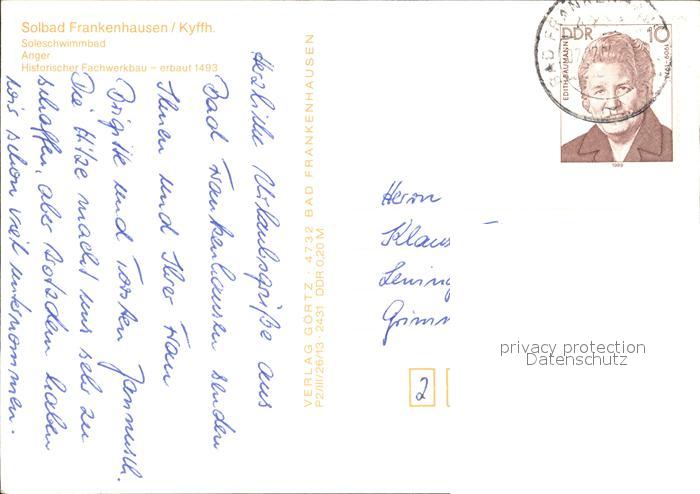 Solbad Frankenhausen / Kyffh.
Soleschwimmbad
Anger
Historischer Fachwerkbau – erbaut 1493
Herzliche Urlaubsgrüße aus
Bad Frankenhausen senden
Ihnen und Ihrer Frau
Brigitte und Torsten
Die Hitze macht uns sehr zu
schaffen, aber trotzdem haben
wir schon viel unternommen.
VERLAG GÖRTZ · 4732 BAD FRANKENHAUSEN
P2/III/26/13 · 2431 DDR 0,20 M
BAD FRANKENHAUSEN
DDR 10
EDITH BAUMANN
1909-1973
1989
Herrn
Klaus
Lening
Grimm
2
privacy protection
Datenschutz